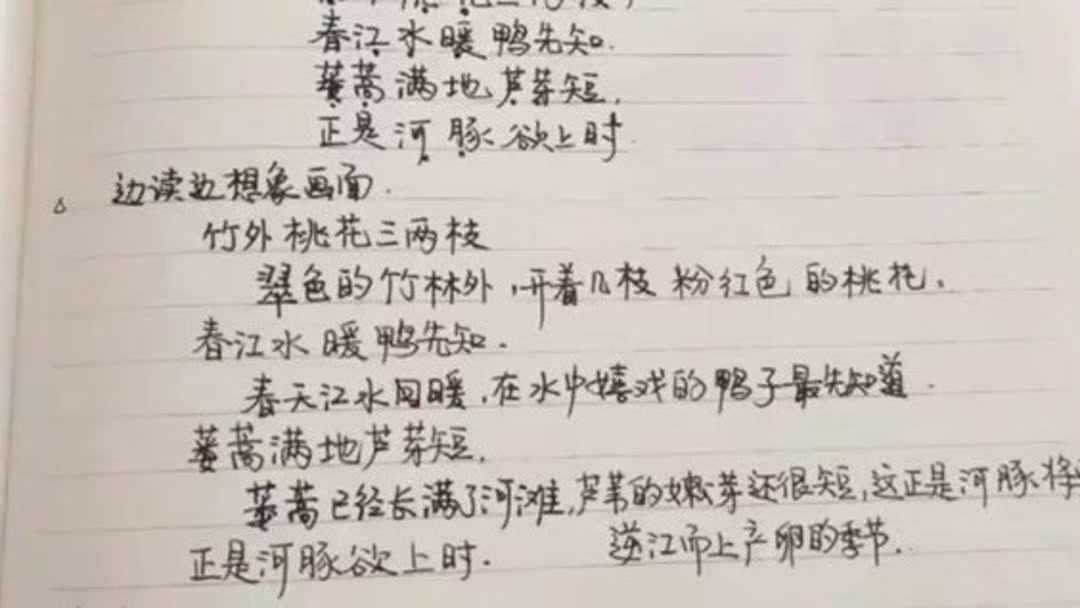 春江水暖鸭先知.
蒌蒿满地芦芽短,
正是河豚欲上时.
△ 边读边想象画面.
竹外桃花三两枝
翠色的竹林外,开着几枝粉红色的桃花.
春江水暖鸭先知.
春天江水回暖,在水中嬉戏的鸭子最先知道.
蒌蒿满地芦芽短.
蒌蒿已经长满了河滩,芦苇的嫩芽还很短,这正是河豚将
逆江而上产卵的季节.
正是河豚欲上时.